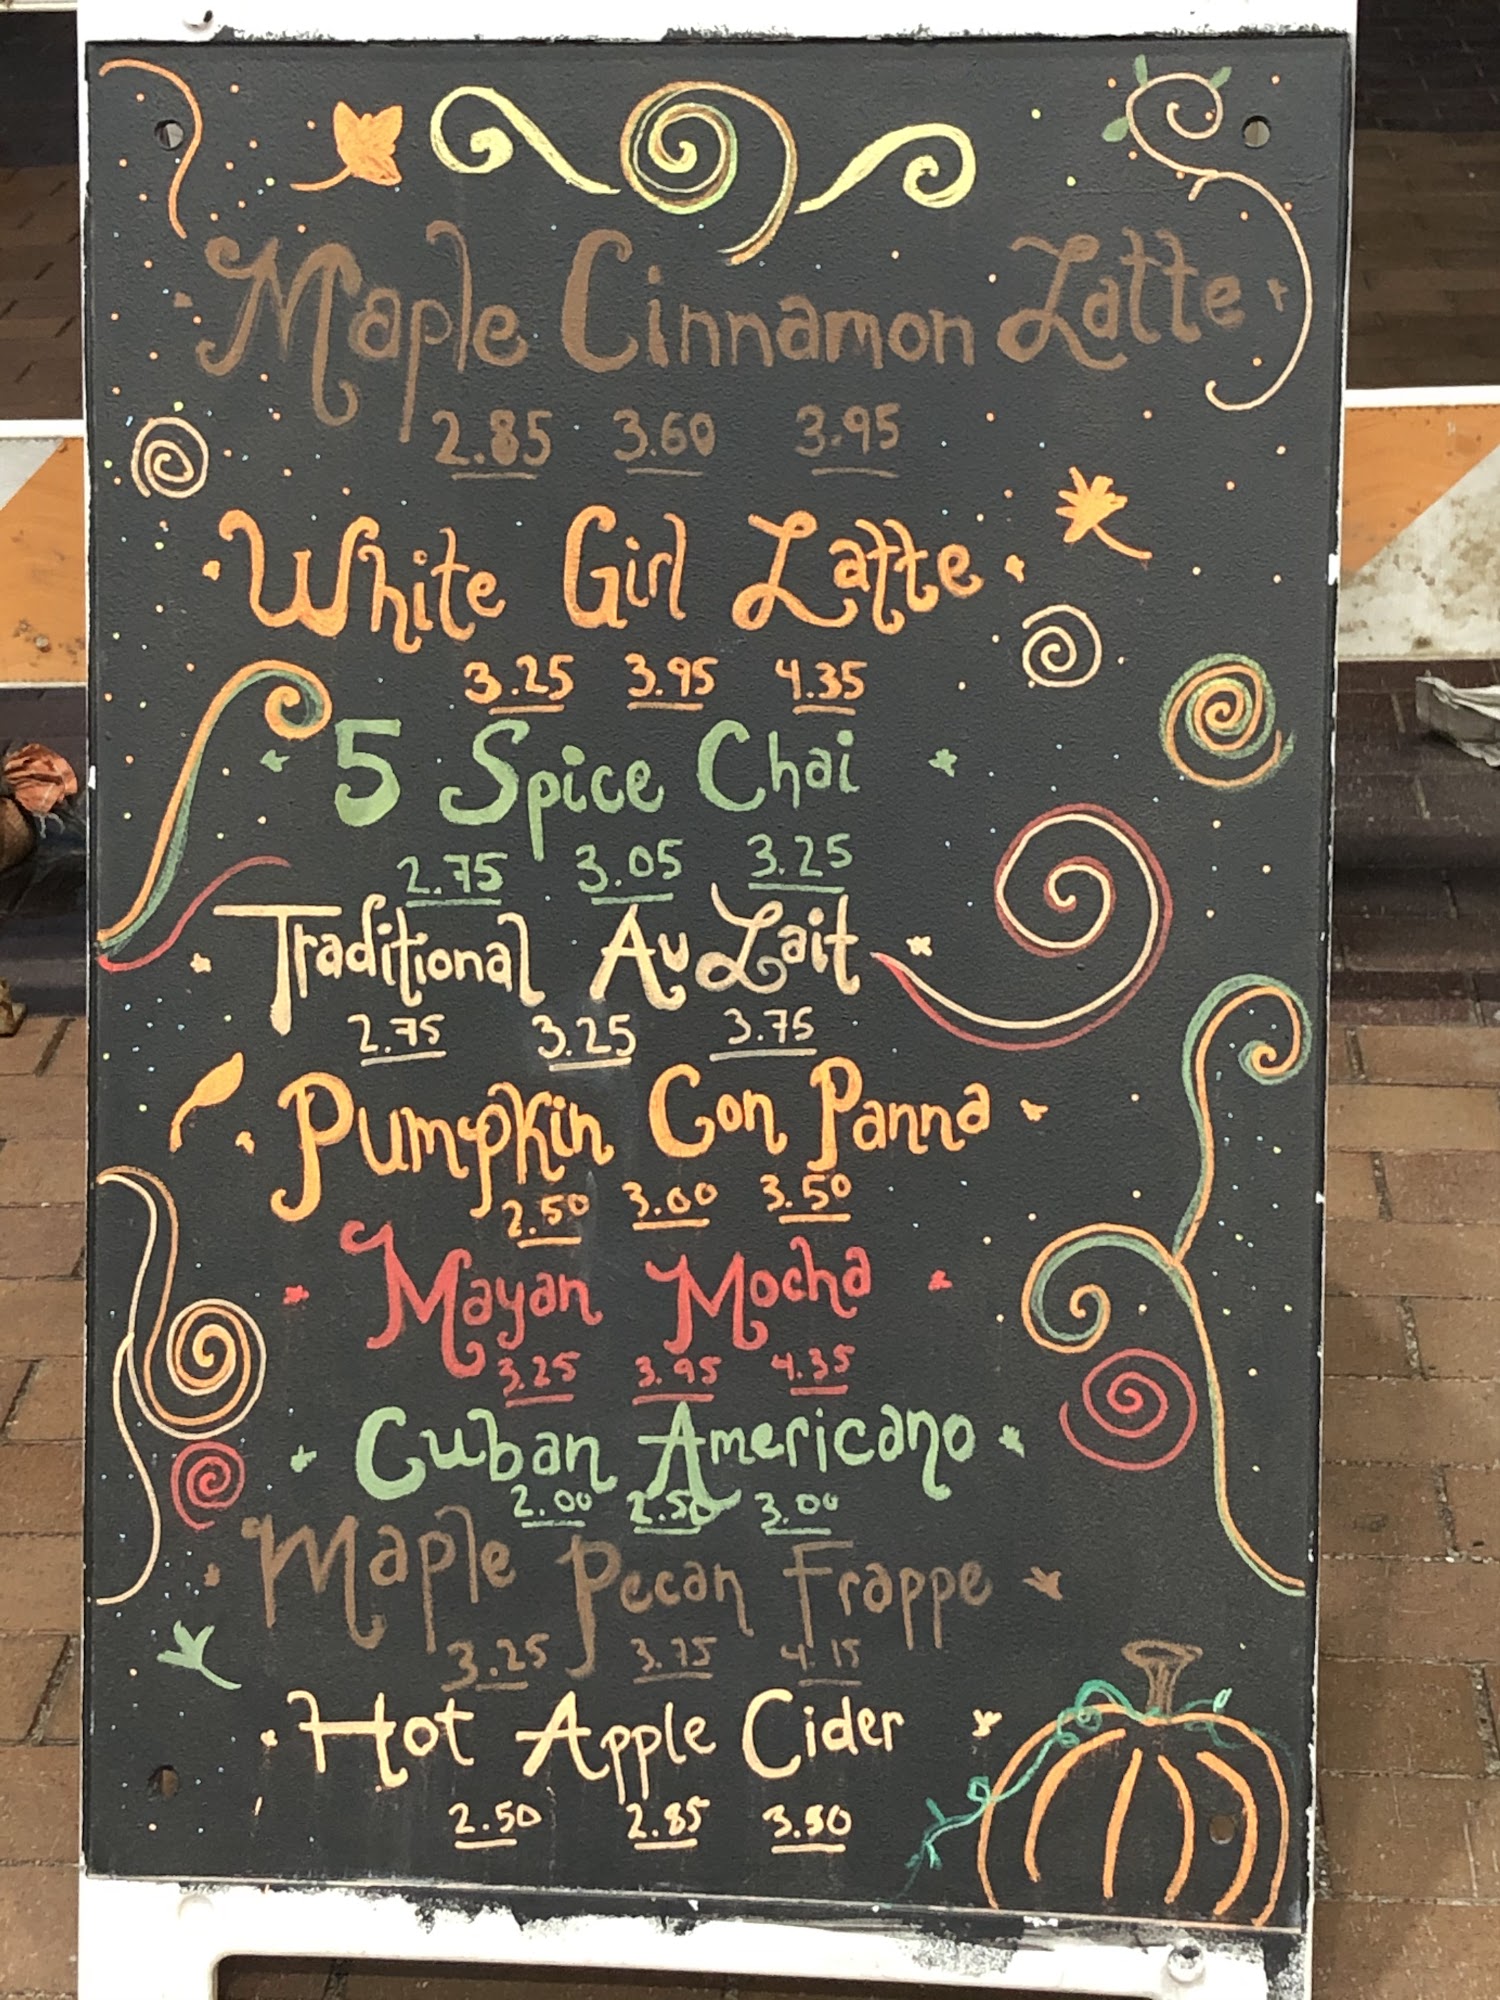 Maple Cinnamon Latte
2.85 3.60 3.95
White Girl Latte
3.25 3.95 4.35
5 Spice Chai
2.75 3.05 3.25
Traditional Au Lait
2.75 3.25 3.75
Pumpkin Con Panna
2.50 3.00 3.50
Mayan Mocha
3.25 3.95 4.35
Cuban Americano
2.00 2.50 3.00
Maple Pecan Frappe
3.25 3.75 4.15
Hot Apple Cider
2.50 2.85 3.50